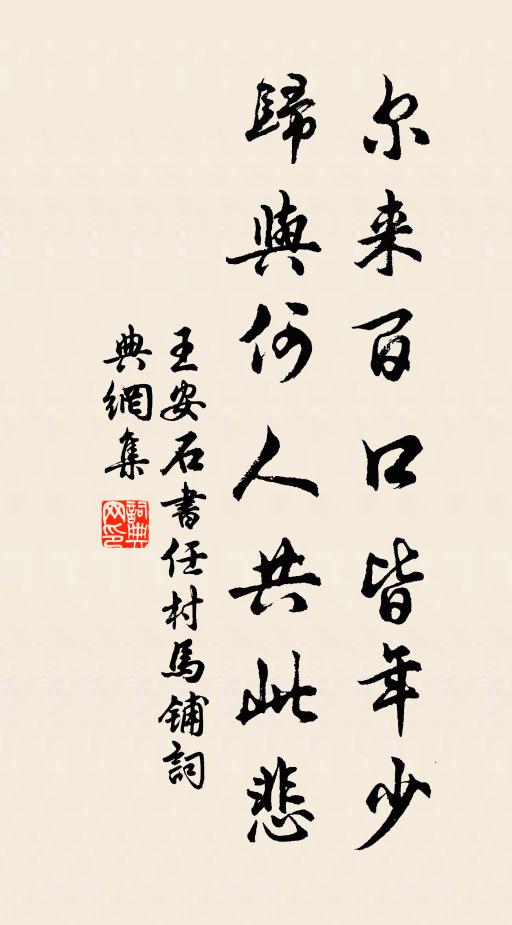 尔来百口皆年少
歸與何人共此悲
王安石書任村馬鋪詞
典網集
詞典
网印